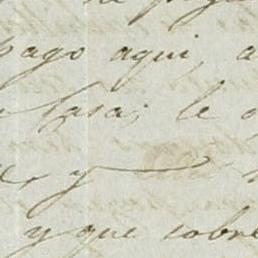 pago aqui, a
casa; le
y
y que sobre